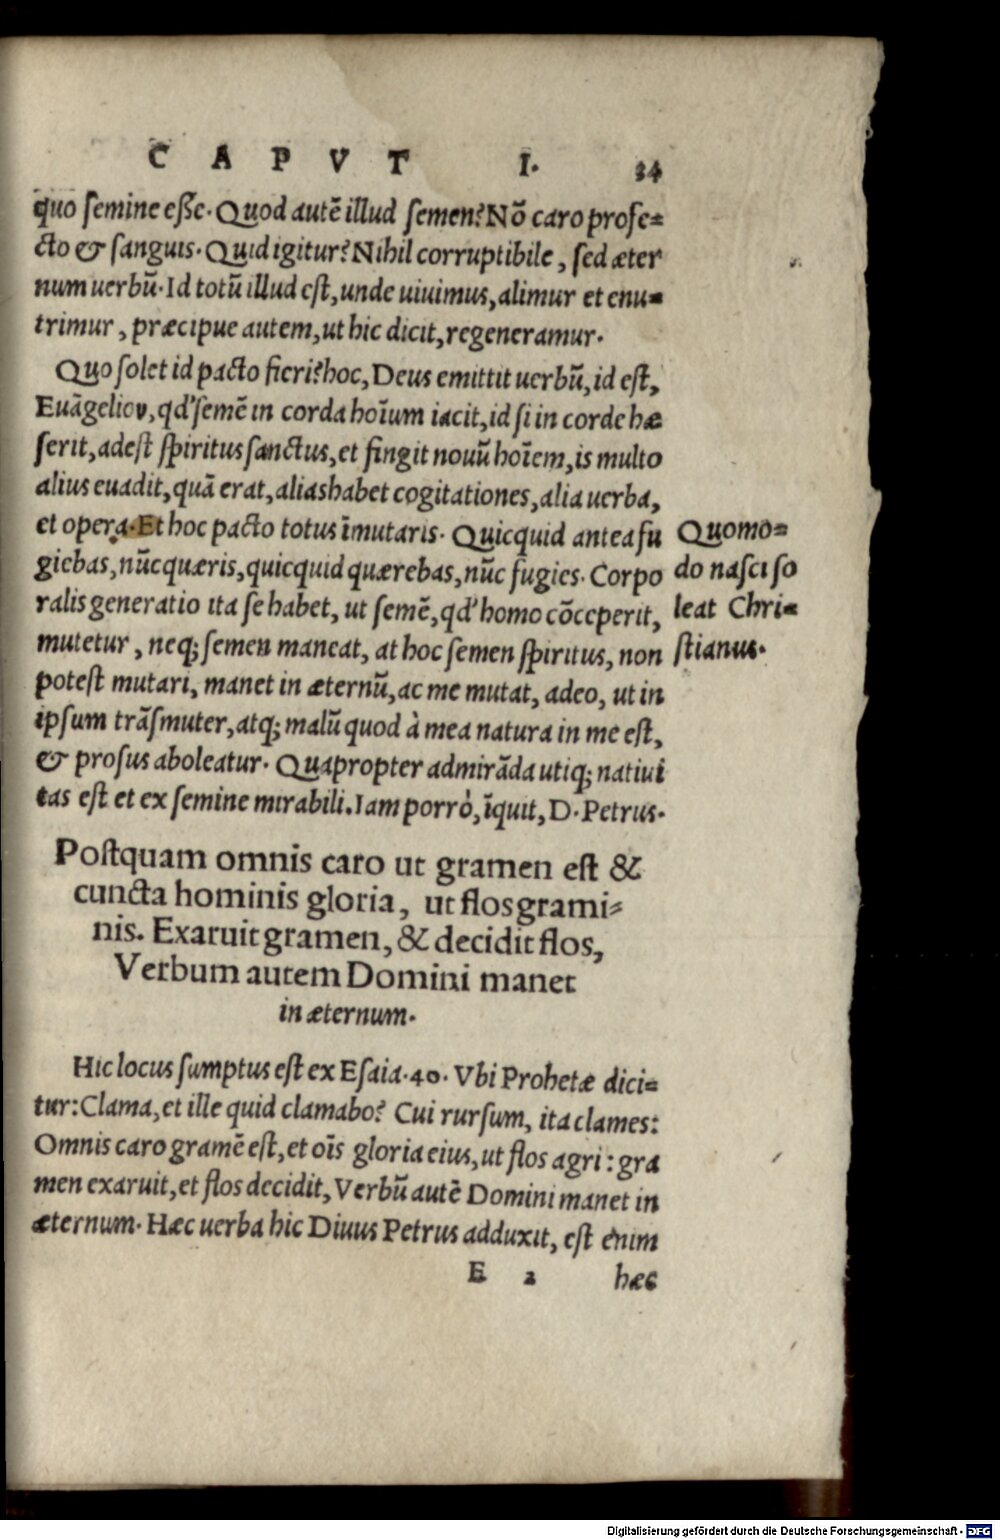 CAPVT I. 34
quo semine esse. Quod autē illud semen? Nō caro profe-
cto & sanguis. Quid igitur? Nihil corruptibile, sed æter
num uerbū. Id totū illud est, unde uiuimus, alimur et enu-
trimur, præcipue autem, ut hic dicit, regeneramur.
Quo solet id pacto fieri? hoc, Deus emittit uerbū, id est,
Euāgeliou, qd' semē in corda hoīum iacit, id si in corde hæ
serit, adest spiritus sanctus, et fingit nouū hoīem, is multo
alius euadit, quā erat, alias habet cogitationes, alia uerba,
et opera. Et hoc pacto totus īmutaris. Quicquid antea fu
giebas, nūc quæris, quicquid quærebas, nūc fugies. Corpo
ralis generatio ita se habet, ut semē, qd' homo cōceperit,
mutetur, neq; semen maneat, at hoc semen spiritus, non
potest mutari, manet in æternū, ac me mutat, adeo, ut in
ipsum trāsmuter, atq; malū quod à mea natura in me est,
& prosus aboleatur. Quapropter admirāda utiq; natiui
tas est et ex semine mirabili. Iam porrò, īquit, D. Petrus.
Quomo-
do nasci so
leat Chri-
stianus.
Postquam omnis caro ut gramen est &
cuncta hominis gloria, ut flos grami-
nis. Exaruit gramen, & decidit flos,
Verbum autem Domini manet
in æternum.
Hic locus sumptus est ex Esaia. 40. Vbi Prohetæ dici-
tur: Clama, et ille quid clamabo? Cui rursum, ita clames:
Omnis caro gramē est, et oīs gloria eius, ut flos agri: gra
men exaruit, et flos decidit, Verbū autē Domini manet in
æternum. Hæc uerba hic Diuus Petrus adduxit, est enim
E 2 hæc
Digitalisierung gefördert durch die Deutsche Forschungsgemeinschaft - DFG